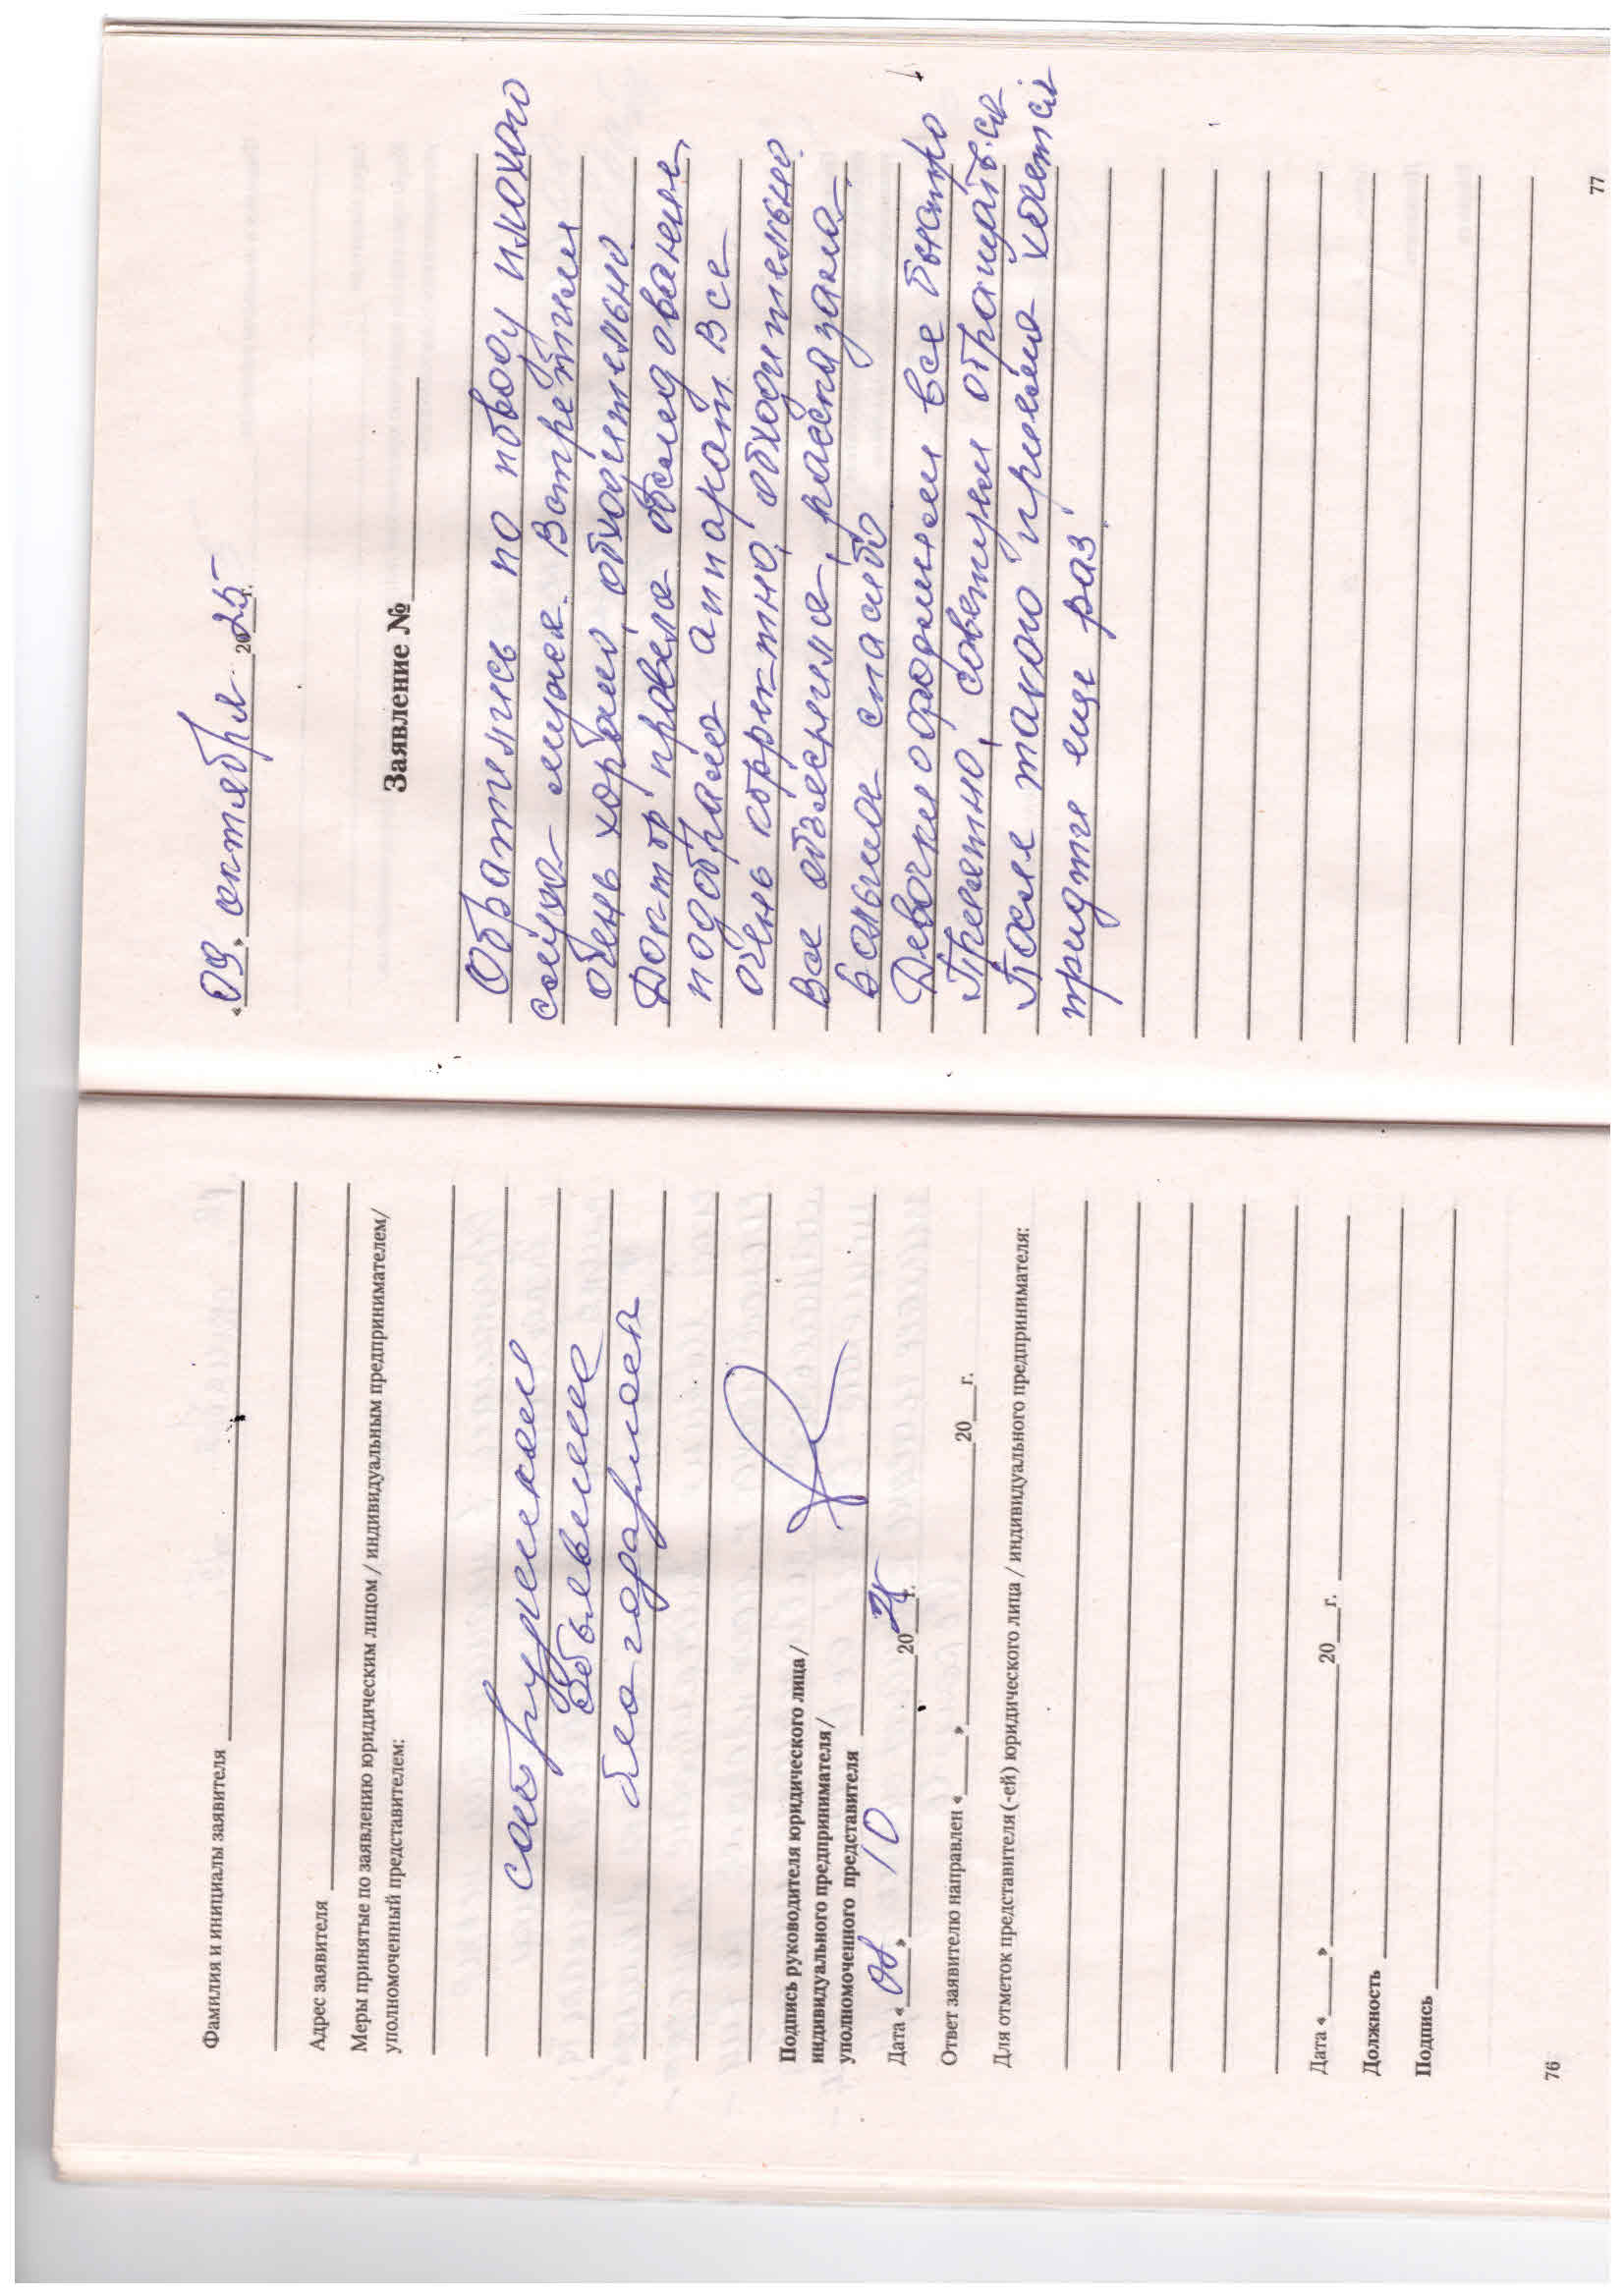 Фамилия и инициалы заявителя
Адрес заявителя
Меры принятые по заявлению юридическим лицом / индивидуальным предпринимателем/
уполномоченный представителем:
сотрудникам
объявлена
благодарность
Подпись руководителя юридического лица/
индивидуального предпринимателя/
уполномоченного представителя
Дата « » 10 20 г.
Ответ заявителю направлен « » 20 г.
Для отметок представителя(-ей) юридического лица / индивидуального предпринимателя:
Дата « » 20 г.
Должность
Подпись
76
«09» октября 2025 г.
Заявление №
Обратились по поводу плохого
слуха мужа. Встретили
очень хорошо, обходительно.
Доктор провела обследование,
подобрала аппарат. Все
очень корректно, обходительно.
Все объяснила, рассказала.
Большое спасибо
Девочки оформили все быстро
Приятно, советуем обращаться
После такого приема хочется
придти еще раз
77